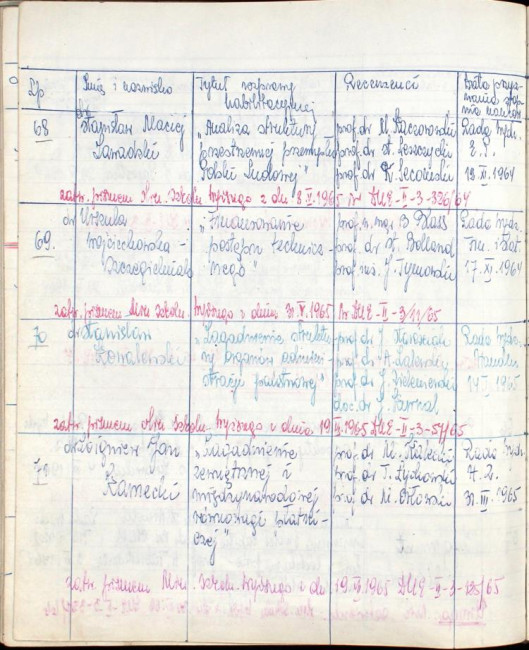 Lp
Imię i nazwisko
Tytuł rozprawy
habilitacyjnej
Recenzenci
Data przyz-
68
dr
Stanisław Maciej
Zawadzki
„Analiza struktury
przestrzennej przemysłu
Polski Ludowej"
prof. dr
prof. dr St. Leszczycki
prof. dr K. Secomski
Rada Wydz.
1964
zatw. pismem Min. Szkoln. Wyższego z dn. 8.II.1965 Nr DUE-II-3-326/64
69.
dr Urszula
Wojciechowska -
„Finansowanie
postępu technicz-
nego"
prof. mgr B. Blass
prof. dr Z. Bolland
prof. inż. J. Tymowski
Rada Wydz.
17.XI.1964
zatw. pismem Min. Szkoln. Wyższego z dnia 31.V.1965 Nr DUE-II-3/11/65
70
dr Stanisław
Kowalewski
„Zagadnienia struktu-
ry organów admini-
stracji państwowej"
prof. dr J. Starościak
prof. dr
prof. dr J.
doc. dr J.
Rada Wydz.
Handlu
1965
zatw. pismem Min. Szkoln. Wyższego z dnia 19.VI.1965 DUE-II-3-57/65
dr Zbigniew Jan
Kamecki
„Zagadnienie
zewnętrznej i
międzynarodowej
równowagi płatni-
czej"
prof. dr M. Kalecki
prof. dr T. Łychowski
prof. dr M. Orłowski
Rada Wydz.
H.Z.
31.III.1965
zatw. pismem Min. Szkoln. Wyższego z dn. 19.VI.1965 DUE-II-3-125/65